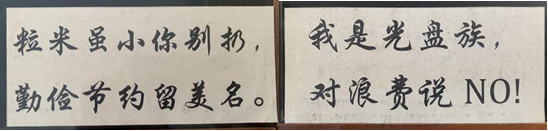 粒米虽小你别扔，
勤俭节约留美名。
我是光盘族，
对浪费说NO!